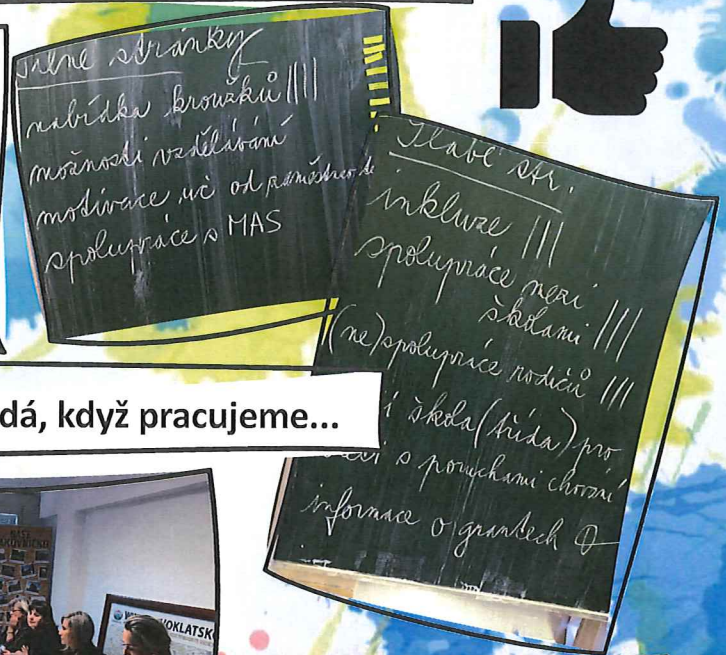 silné stránky
nabídka kroužků ||||
možnosti vzdělávání
motivace uč od
spolupráce s MAS
Slabé str.
inkluze |||
spolupráce mezi
školami |||
(ne)spolupráce rodičů |||
škola (třída) pro
s poruchami chování
informace o grantech
dá, když pracujeme...
OKLATSK